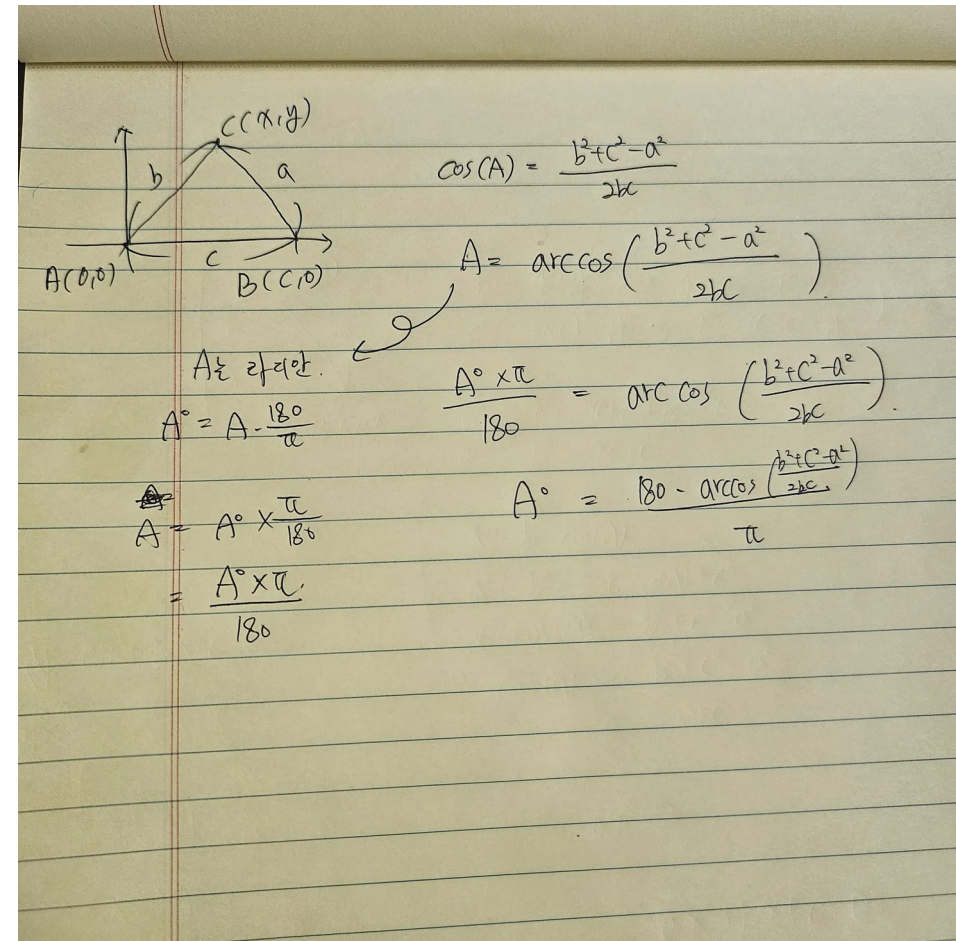 C(x,y)
b
a
c
A(0,0)
B(C,0)
cos(A) = (b²+c²-a²)/(2bc)
A = arccos((b²+c²-a²)/(2bc)).
A는 라디안.
A° = A · 180/π
A = A° × π/180
= (A°×π)/180
(A°×π)/180 = arc cos((b²+c²-a²)/(2bc)).
A° = (180 · arccos((b²+c²-a²)/(2bc)))/π